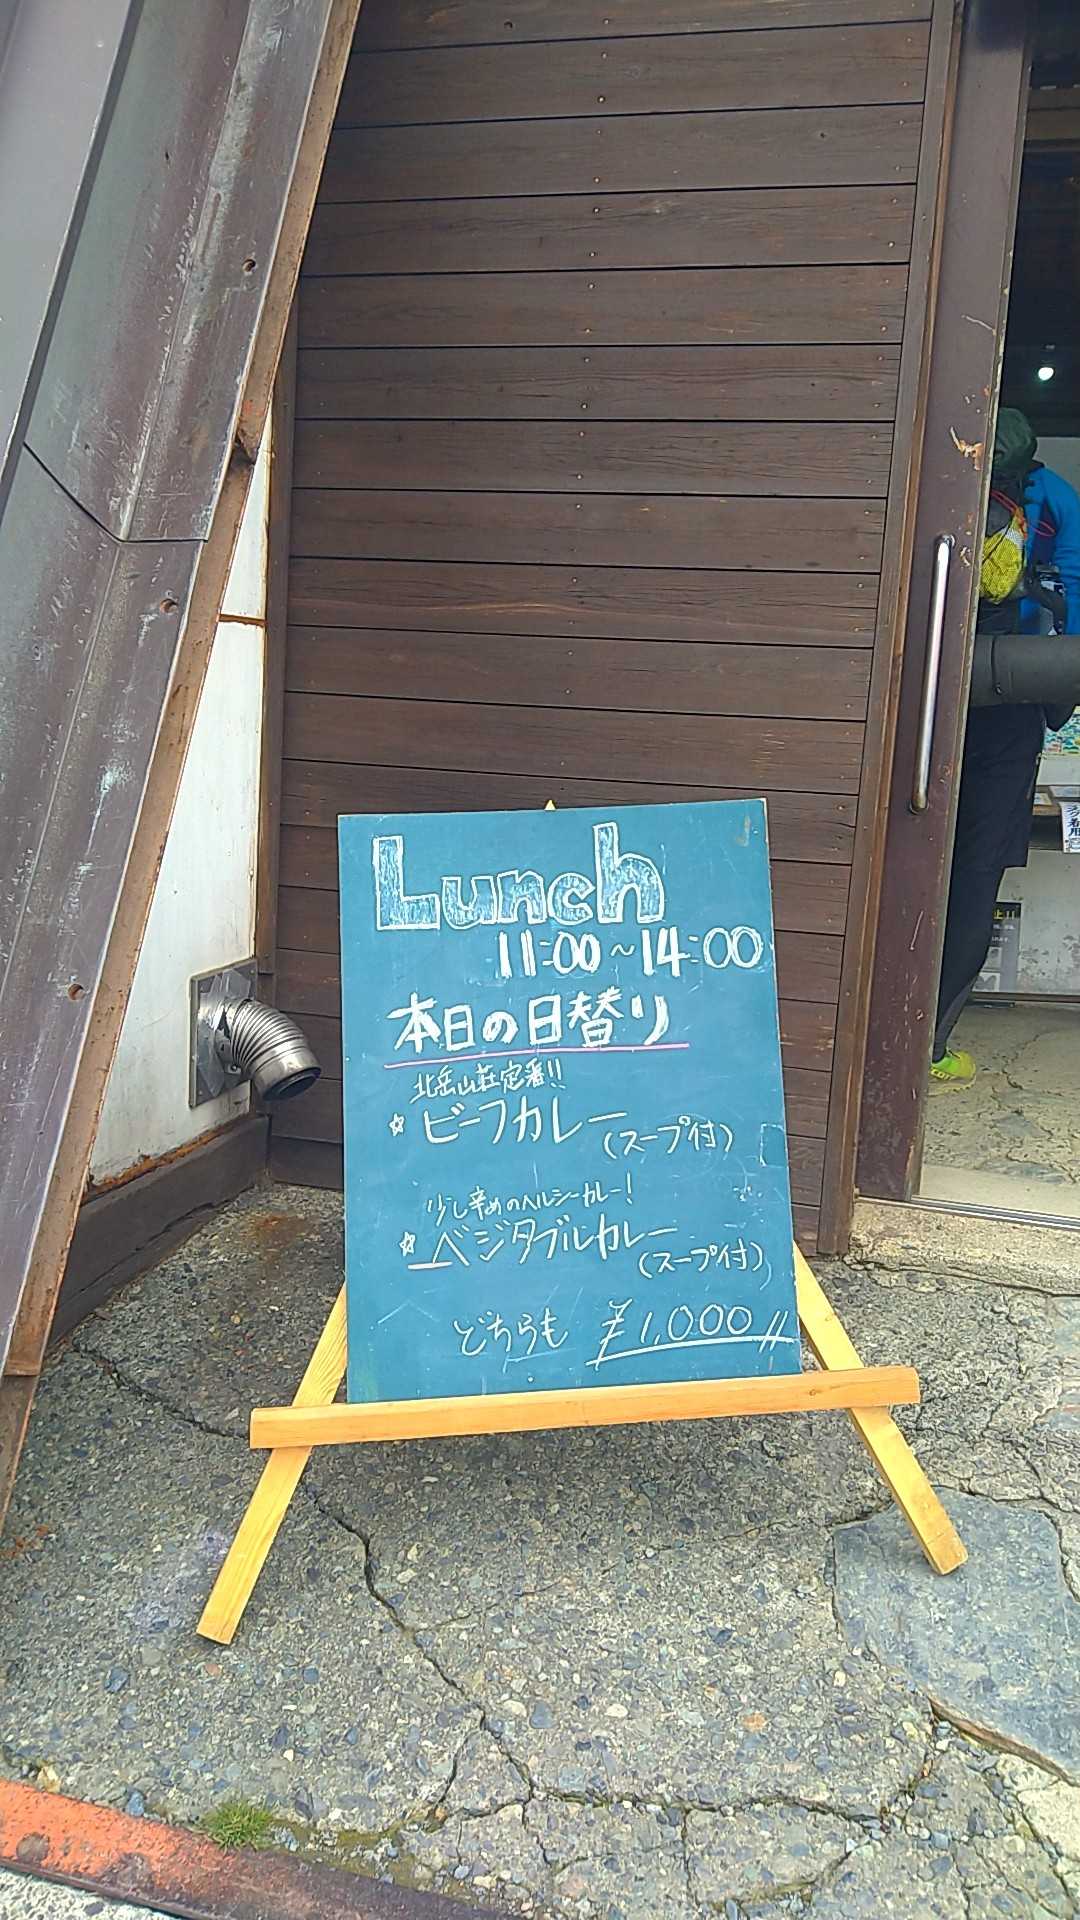 Lunch
11:00~14:00
本日の日替り
北岳山荘定番!!
☆ビーフカレー
(スープ付)
少し辛めのヘルシーカレー!
☆ベジタブルカレー
(スープ付)
どちらも ¥1,000